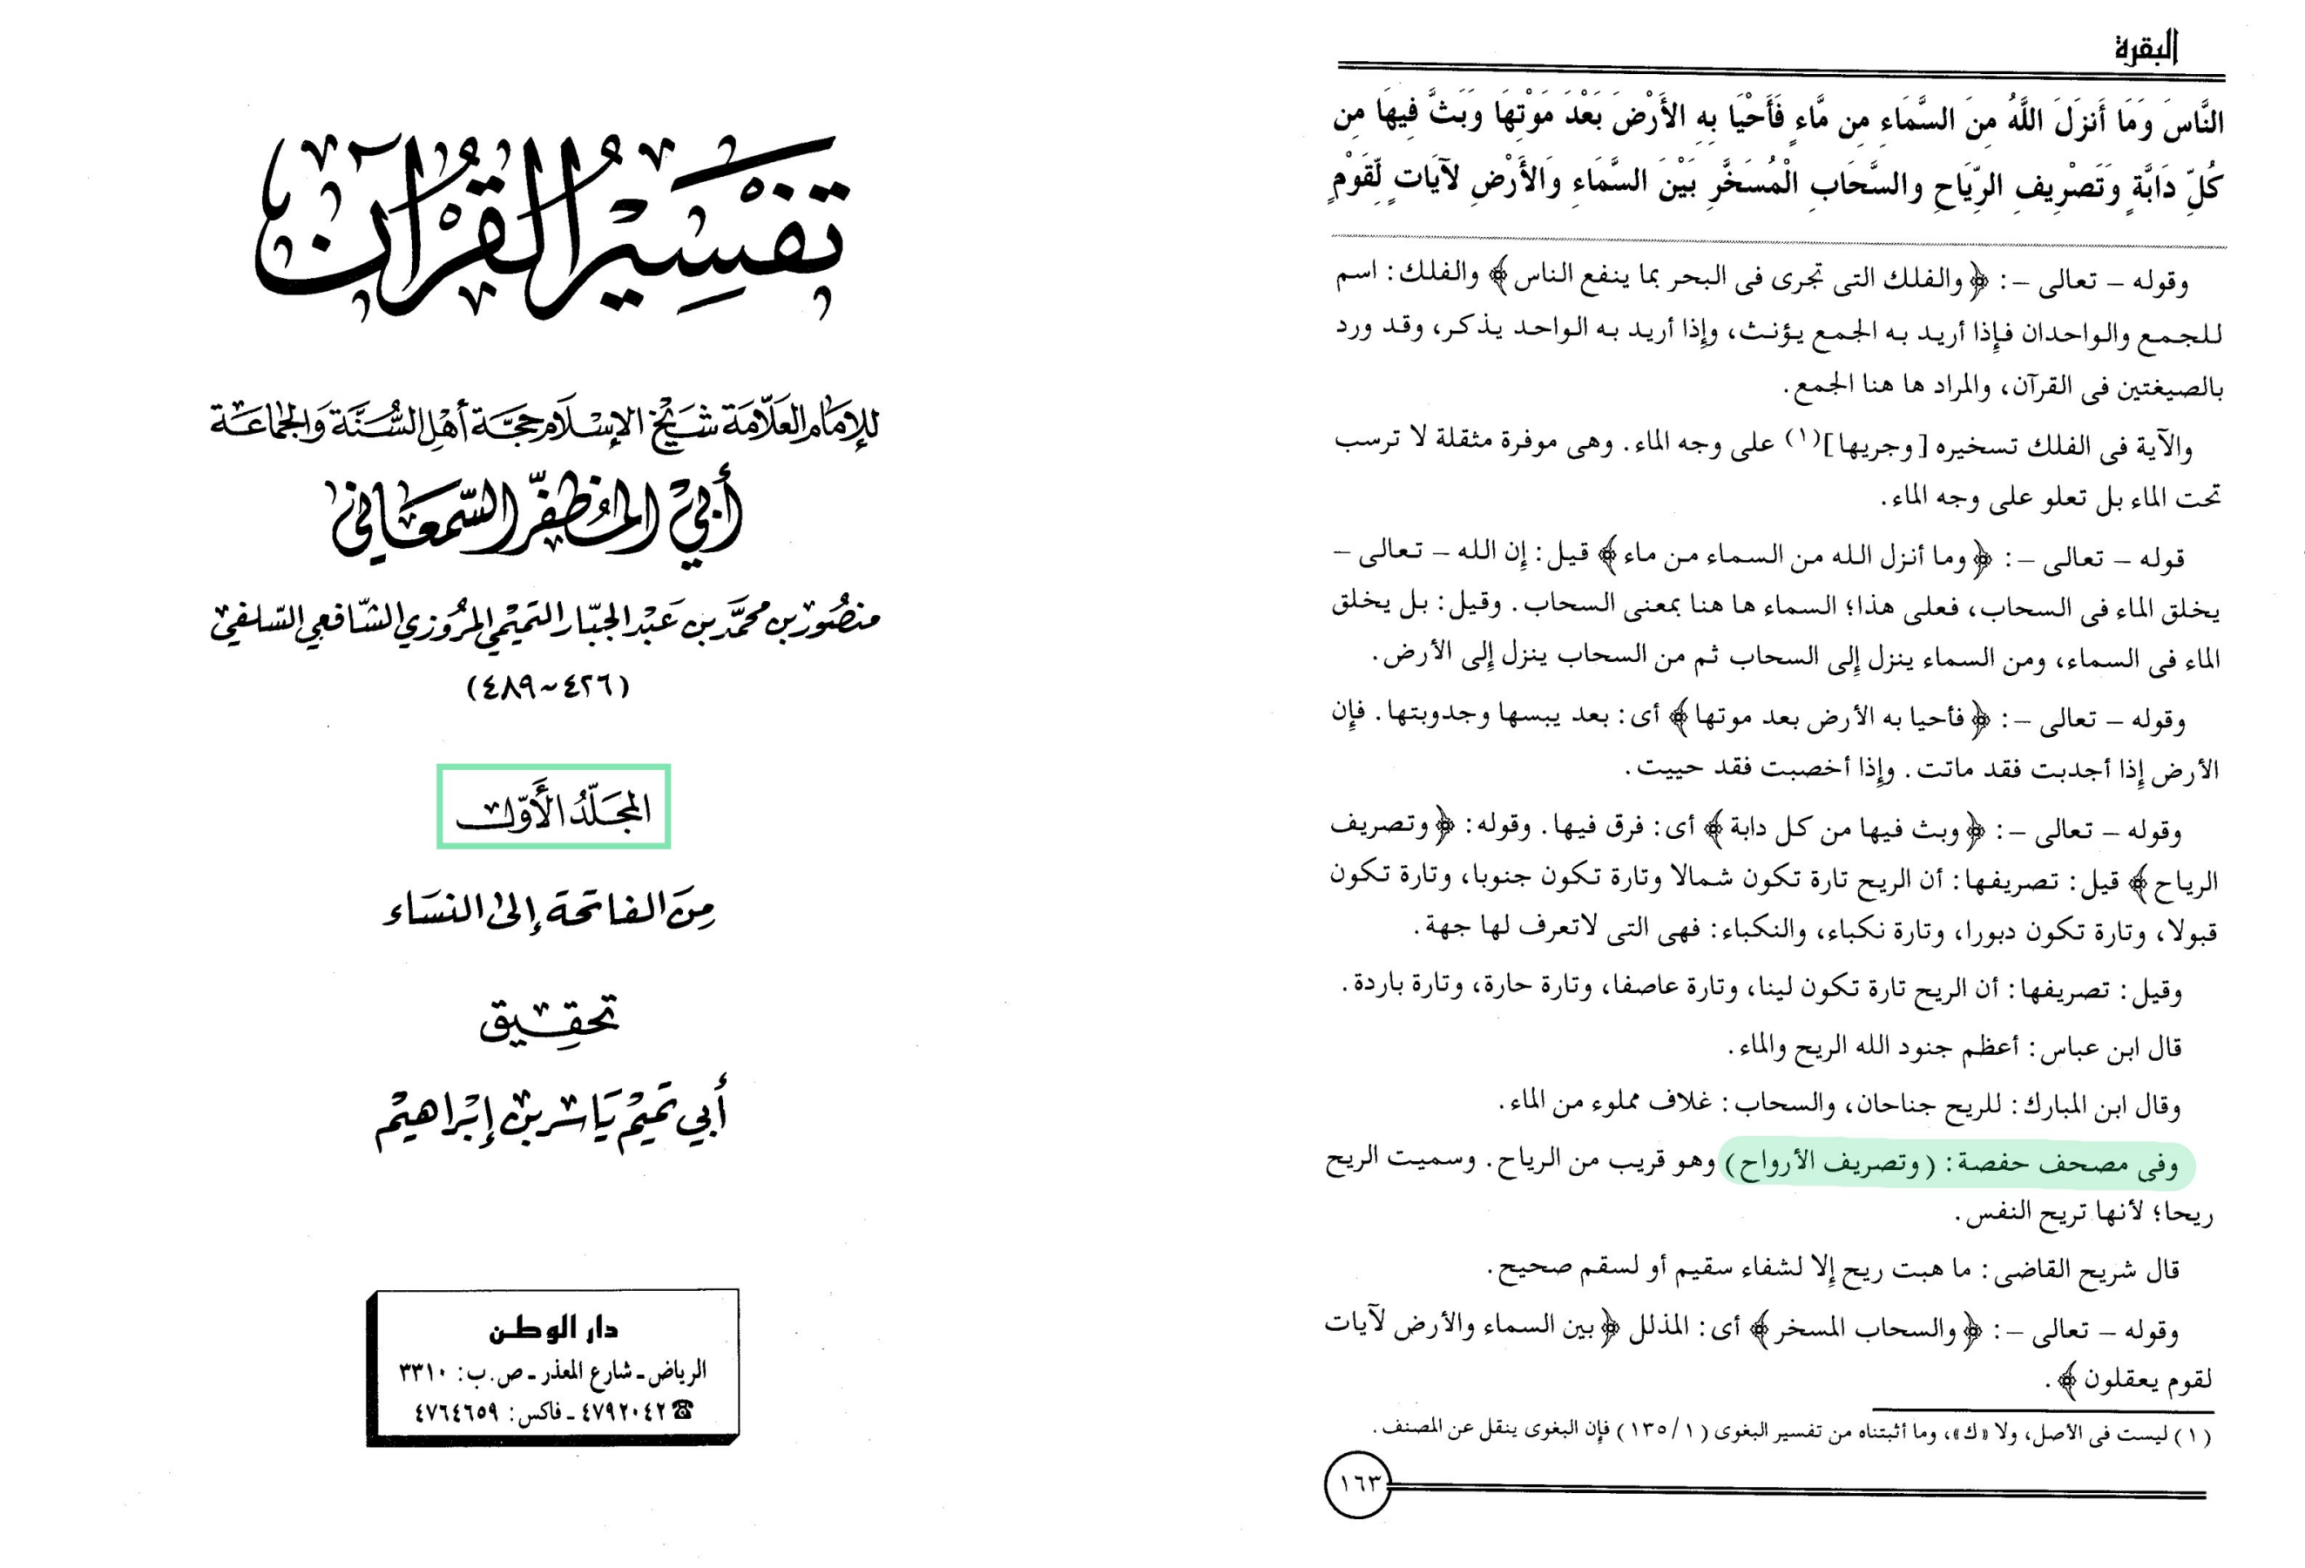 تفسير القرآن
للإمام العلامة شيخ الإسلام حجة أهل السنة والجماعة
أبي المظفر السمعاني
منصور بن محمد بن عبد الجبار التميمي المروزي الشافعي السلفي
(٤٢٦~٤٨٩)
المجلد الأول
من الفاتحة إلى النساء
تحقيق
أبي تميم ياسر بن إبراهيم
دار الوطن
الرياض ـ شارع المعذر ـ ص.ب: ٣٣١٠
☎ ٤٧٩٢٠٤٢ ـ فاكس: ٤٧٦٤٦٥٩
البقرة
النَّاسَ وَمَا أَنزَلَ اللَّهُ مِنَ السَّمَاءِ مِن مَّاءٍ فَأَحْيَا بِهِ الأَرْضَ بَعْدَ مَوْتِهَا وَبَثَّ فِيهَا مِن
كُلِّ دَابَّةٍ وَتَصْرِيفِ الرِّيَاحِ والسَّحَابِ الْمُسَخَّرِ بَيْنَ السَّمَاءِ وَالأَرْضِ لآيَاتٍ لِّقَوْمٍ
وقوله – تعالى –: ﴿والفلك التى تجرى فى البحر بما ينفع الناس﴾ والفلك: اسم
للجمع والواحدان فإذا أريد به الجمع يؤنث، وإذا أريد به الواحد يذكر، وقد ورد
بالصيغتين فى القرآن، والمراد ها هنا الجمع.
والآية فى الفلك تسخيره [وجريها](١) على وجه الماء. وهى موفرة مثقلة لا ترسب
تحت الماء بل تعلو على وجه الماء.
قوله – تعالى –: ﴿وما أنزل الله من السماء من ماء﴾ قيل: إن الله – تعالى –
يخلق الماء فى السحاب، فعلى هذا؛ السماء ها هنا بمعنى السحاب. وقيل: بل يخلق
الماء فى السماء، ومن السماء ينزل إلى السحاب ثم من السحاب ينزل إلى الأرض.
وقوله – تعالى –: ﴿فأحيا به الأرض بعد موتها﴾ أى: بعد يبسها وجدوبتها. فإن
الأرض إذا أجدبت فقد ماتت. وإذا أخصبت فقد حييت.
وقوله – تعالى –: ﴿وبث فيها من كل دابة﴾ أى: فرق فيها. وقوله: ﴿وتصريف
الرياح﴾ قيل: تصريفها: أن الريح تارة تكون شمالا وتارة تكون جنوبا، وتارة تكون
قبولا، وتارة تكون دبورا، وتارة نكباء، والنكباء: فهى التى لاتعرف لها جهة.
وقيل: تصريفها: أن الريح تارة تكون لينا، وتارة عاصفا، وتارة حارة، وتارة باردة.
قال ابن عباس: أعظم جنود الله الريح والماء.
وقال ابن المبارك: للريح جناحان، والسحاب: غلاف مملوء من الماء.
وفى مصحف حفصة: (وتصريف الأرواح) وهو قريب من الرياح. وسميت الريح
ريحا؛ لأنها تريح النفس.
قال شريح القاضى: ما هبت ريح إلا لشفاء سقيم أو لسقم صحيح.
وقوله – تعالى –: ﴿والسحاب المسخر﴾ أى: المذلل ﴿بين السماء والأرض لآيات
لقوم يعقلون﴾.
(١) ليست فى الأصل، ولا «ك»، وما أثبتناه من تفسير البغوى (١/ ١٣٥) فإن البغوى ينقل عن المصنف.
١٦٣